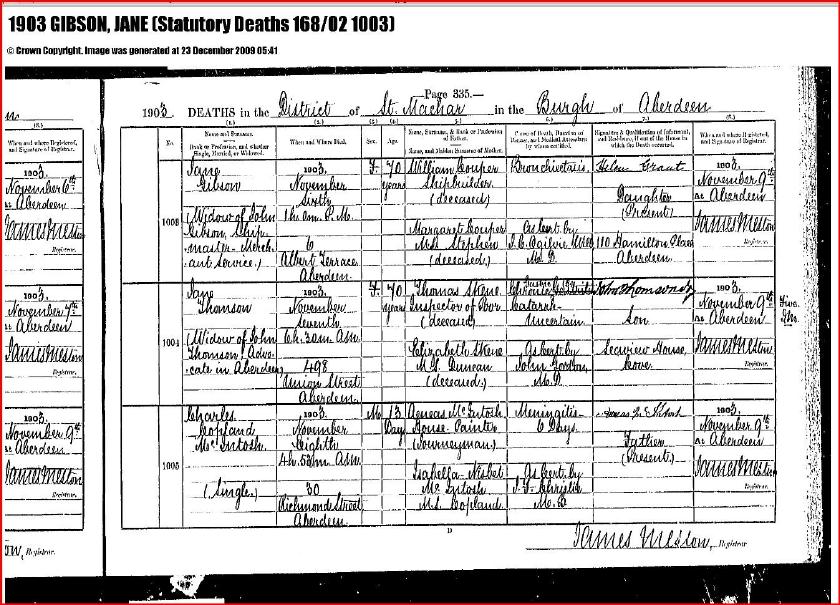 1903 GIBSON, JANE (Statutory Deaths 168/02 1003)
© Crown Copyright. Image was generated at 23 December 2009 05:41
—Page 335.—
1903. DEATHS in the District of St. Machar in the Burgh of Aberdeen
No.
Name and Surname.
Rank or Profession, and whether Single, Married, or Widowed.
When and Where Died.
Sex.
Age.
Name, Surname, & Rank or Profession of Father.
Name, and Maiden Surname of Mother.
Cause of Death, Duration of Disease, and Medical Attendant by whom certified.
Signature & Qualification of Informant, and Residence, if out of the House in which the Death occurred.
When and where Registered, and Signature of Registrar.
1003
Jane
Gibson
(Widow of John
Gibson, Ship
master - Merch
ant Service.)
1903.
November
Sixth
1h. 0m. P.M.
6
Albert Terrace
Aberdeen
F.
70
years
William Couper
Shipbuilder
(deceased)
Margaret Couper
M.S. Stephen
(deceased.)
Bronchiectasis
As cert. by
M.D.
Helen Grant
Daughter
(Present)
110 Hamilton Place
Aberdeen.
1903.
November 9th
At Aberdeen
James Meston
Registrar.
1004
Jane
Thomson
(Widow of John
Thomson, Advo-
cate in Aberdeen)
1903.
November
Seventh
6h. 30m. A.M.
498
Union Street
Aberdeen.
F.
70
years
Thomas Skene
Inspector of Poor
(deceased)
Elizabeth Skene
M.S. Duncan
(deceased.)
Catarrh
Uncertain
As cert. by
John Gordon
M.D.
John Thomson
Son
Seaview House
Cove.
1903.
November 9th
At Aberdeen
James Meston
Registrar.
1005
Charles
Copland
McIntosh
(Single.)
1903.
November
Eighth
4h. 50m. A.M.
30
Richmond Street
Aberdeen
M.
13
Days
Aeneas McIntosh
House Painter
(Journeyman)
Isabella Nisbet
McIntosh
M.S. Copland.
Meningitis
6 Days.
As cert. by
Christie
M.B.
Father
(Present)
1903.
November 9th
At Aberdeen
James Meston
Registrar.
James Meston, Registrar.
When and where Registered, and Signature of Registrar.
1903.
November 6th
At Aberdeen
James Meston
Registrar.
1903.
November 7th
At Aberdeen
James Meston
Registrar.
1903.
November 9th
At Aberdeen
James Meston
Registrar.
Registrar.